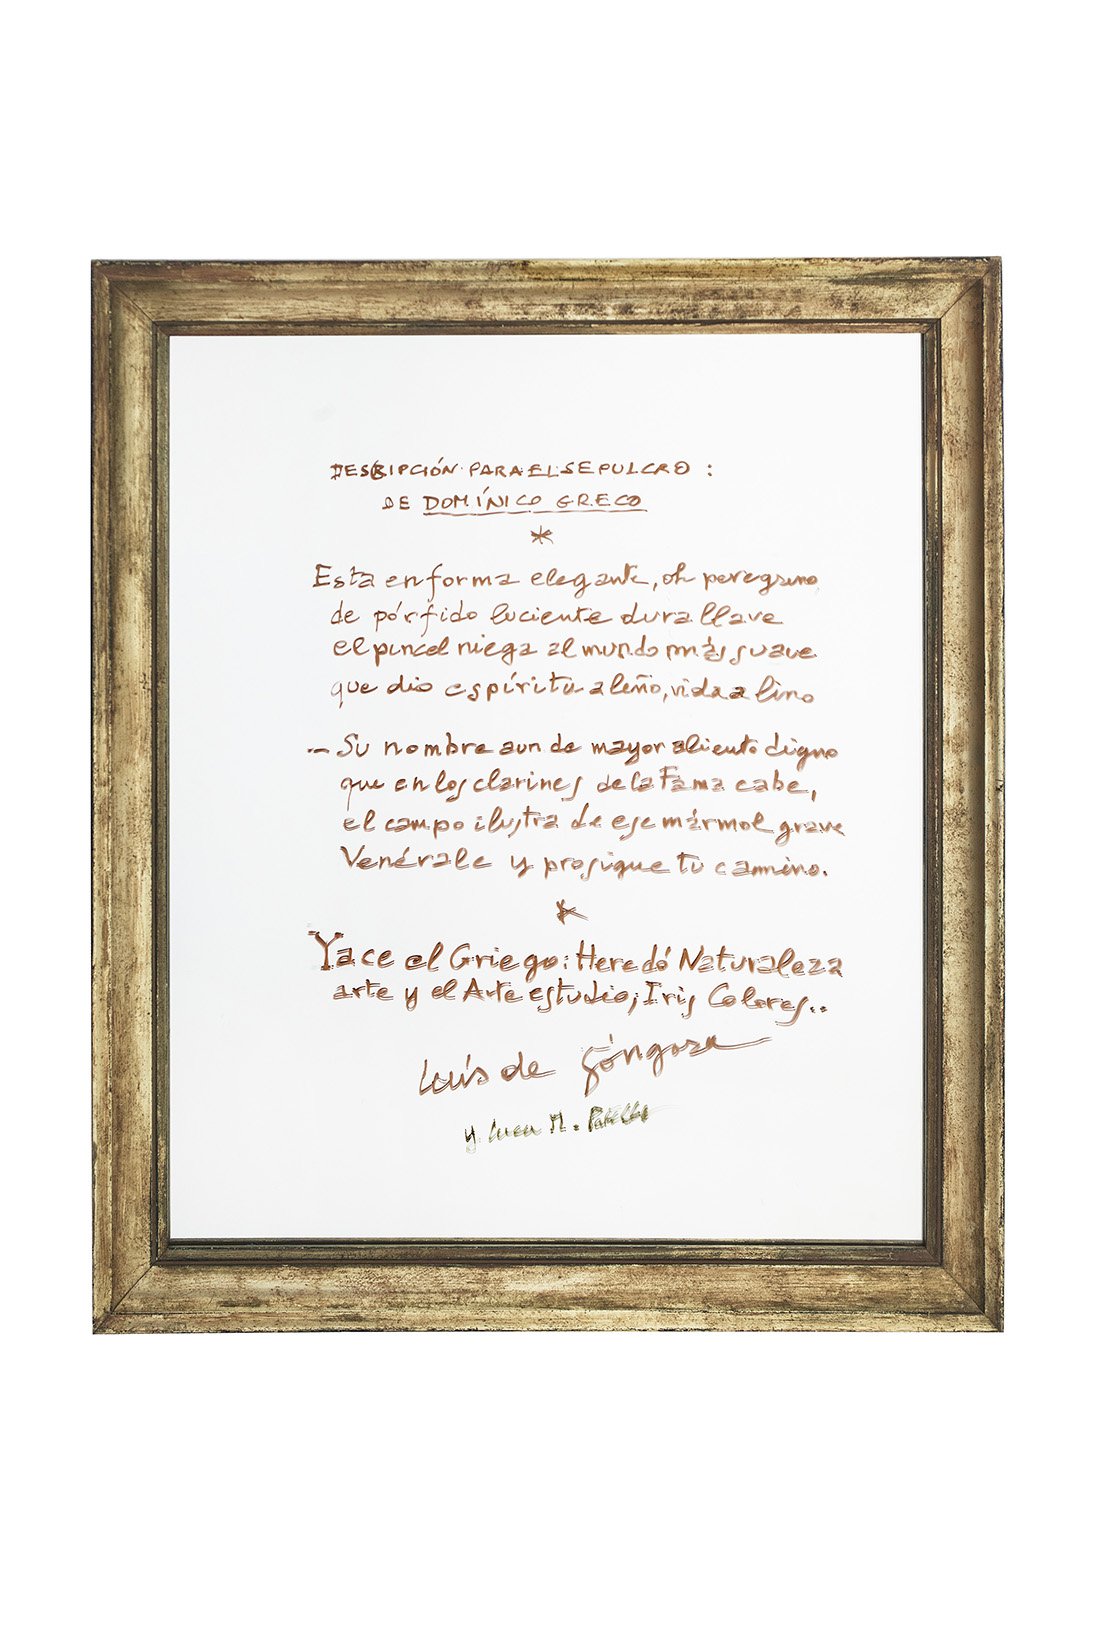 DESCRIPCIÓN PARA EL SEPULCRO:
DE DOMÍNICO GRECO
*
Esta en forma elegante, oh peregrino
de pórfido luciente dura llave
el pincel niega al mundo más suave
que dio espíritu a leño, vida a lino
– Su nombre aun de mayor aliento digno
que en los clarines de la Fama cabe,
el campo ilustra de ese mármol grave
Venérale y prosigue tu camino.
*
Yace el Griego: Heredó Naturaleza
arte y el Arte estudio; Iris Colores..
Luís de Góngora
y. M.